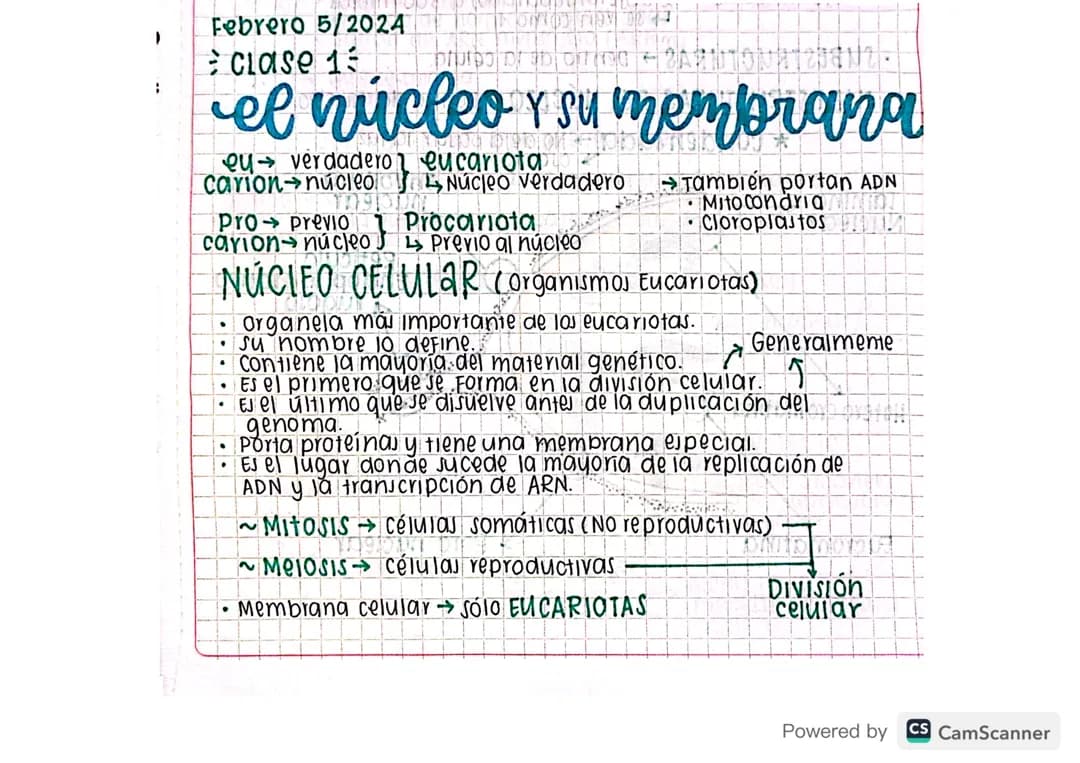 Febrero 5/2024
Clase 1
el núcleo y su membrana
eu→ verdadero } eucariota
carion→núcleo ↳ Núcleo verdadero
→También portan ADN
• Mitocondria
• Cloroplastos
Pro→ previo } Procariota
carion→ núcleo ↳ Previo al núcleo
NÚCLEO CELULAR (Organismos Eucariotas)
• Organela más importante de los eucariotas.
• Su nombre lo define.
Generalmente
• Contiene la mayoría del material genético.
• Es el primero que se forma en la división celular.
• Es el último que se disuelve antes de la duplicación del
genoma.
• Porta proteínas y tiene una membrana especial.
• Es el lugar donde sucede la mayoría de la replicación de
ADN y la transcripción de ARN.
~ Mitosis → células somáticas (No reproductivas)
~ Meiosis → células reproductivas
División
celular
• Membrana celular → sólo EUCARIOTAS
Powered by CS CamScanner